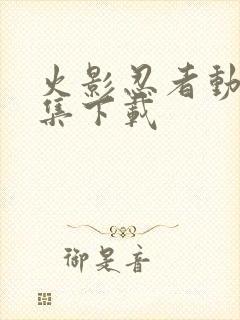 火影忍者動
集下載
御是音